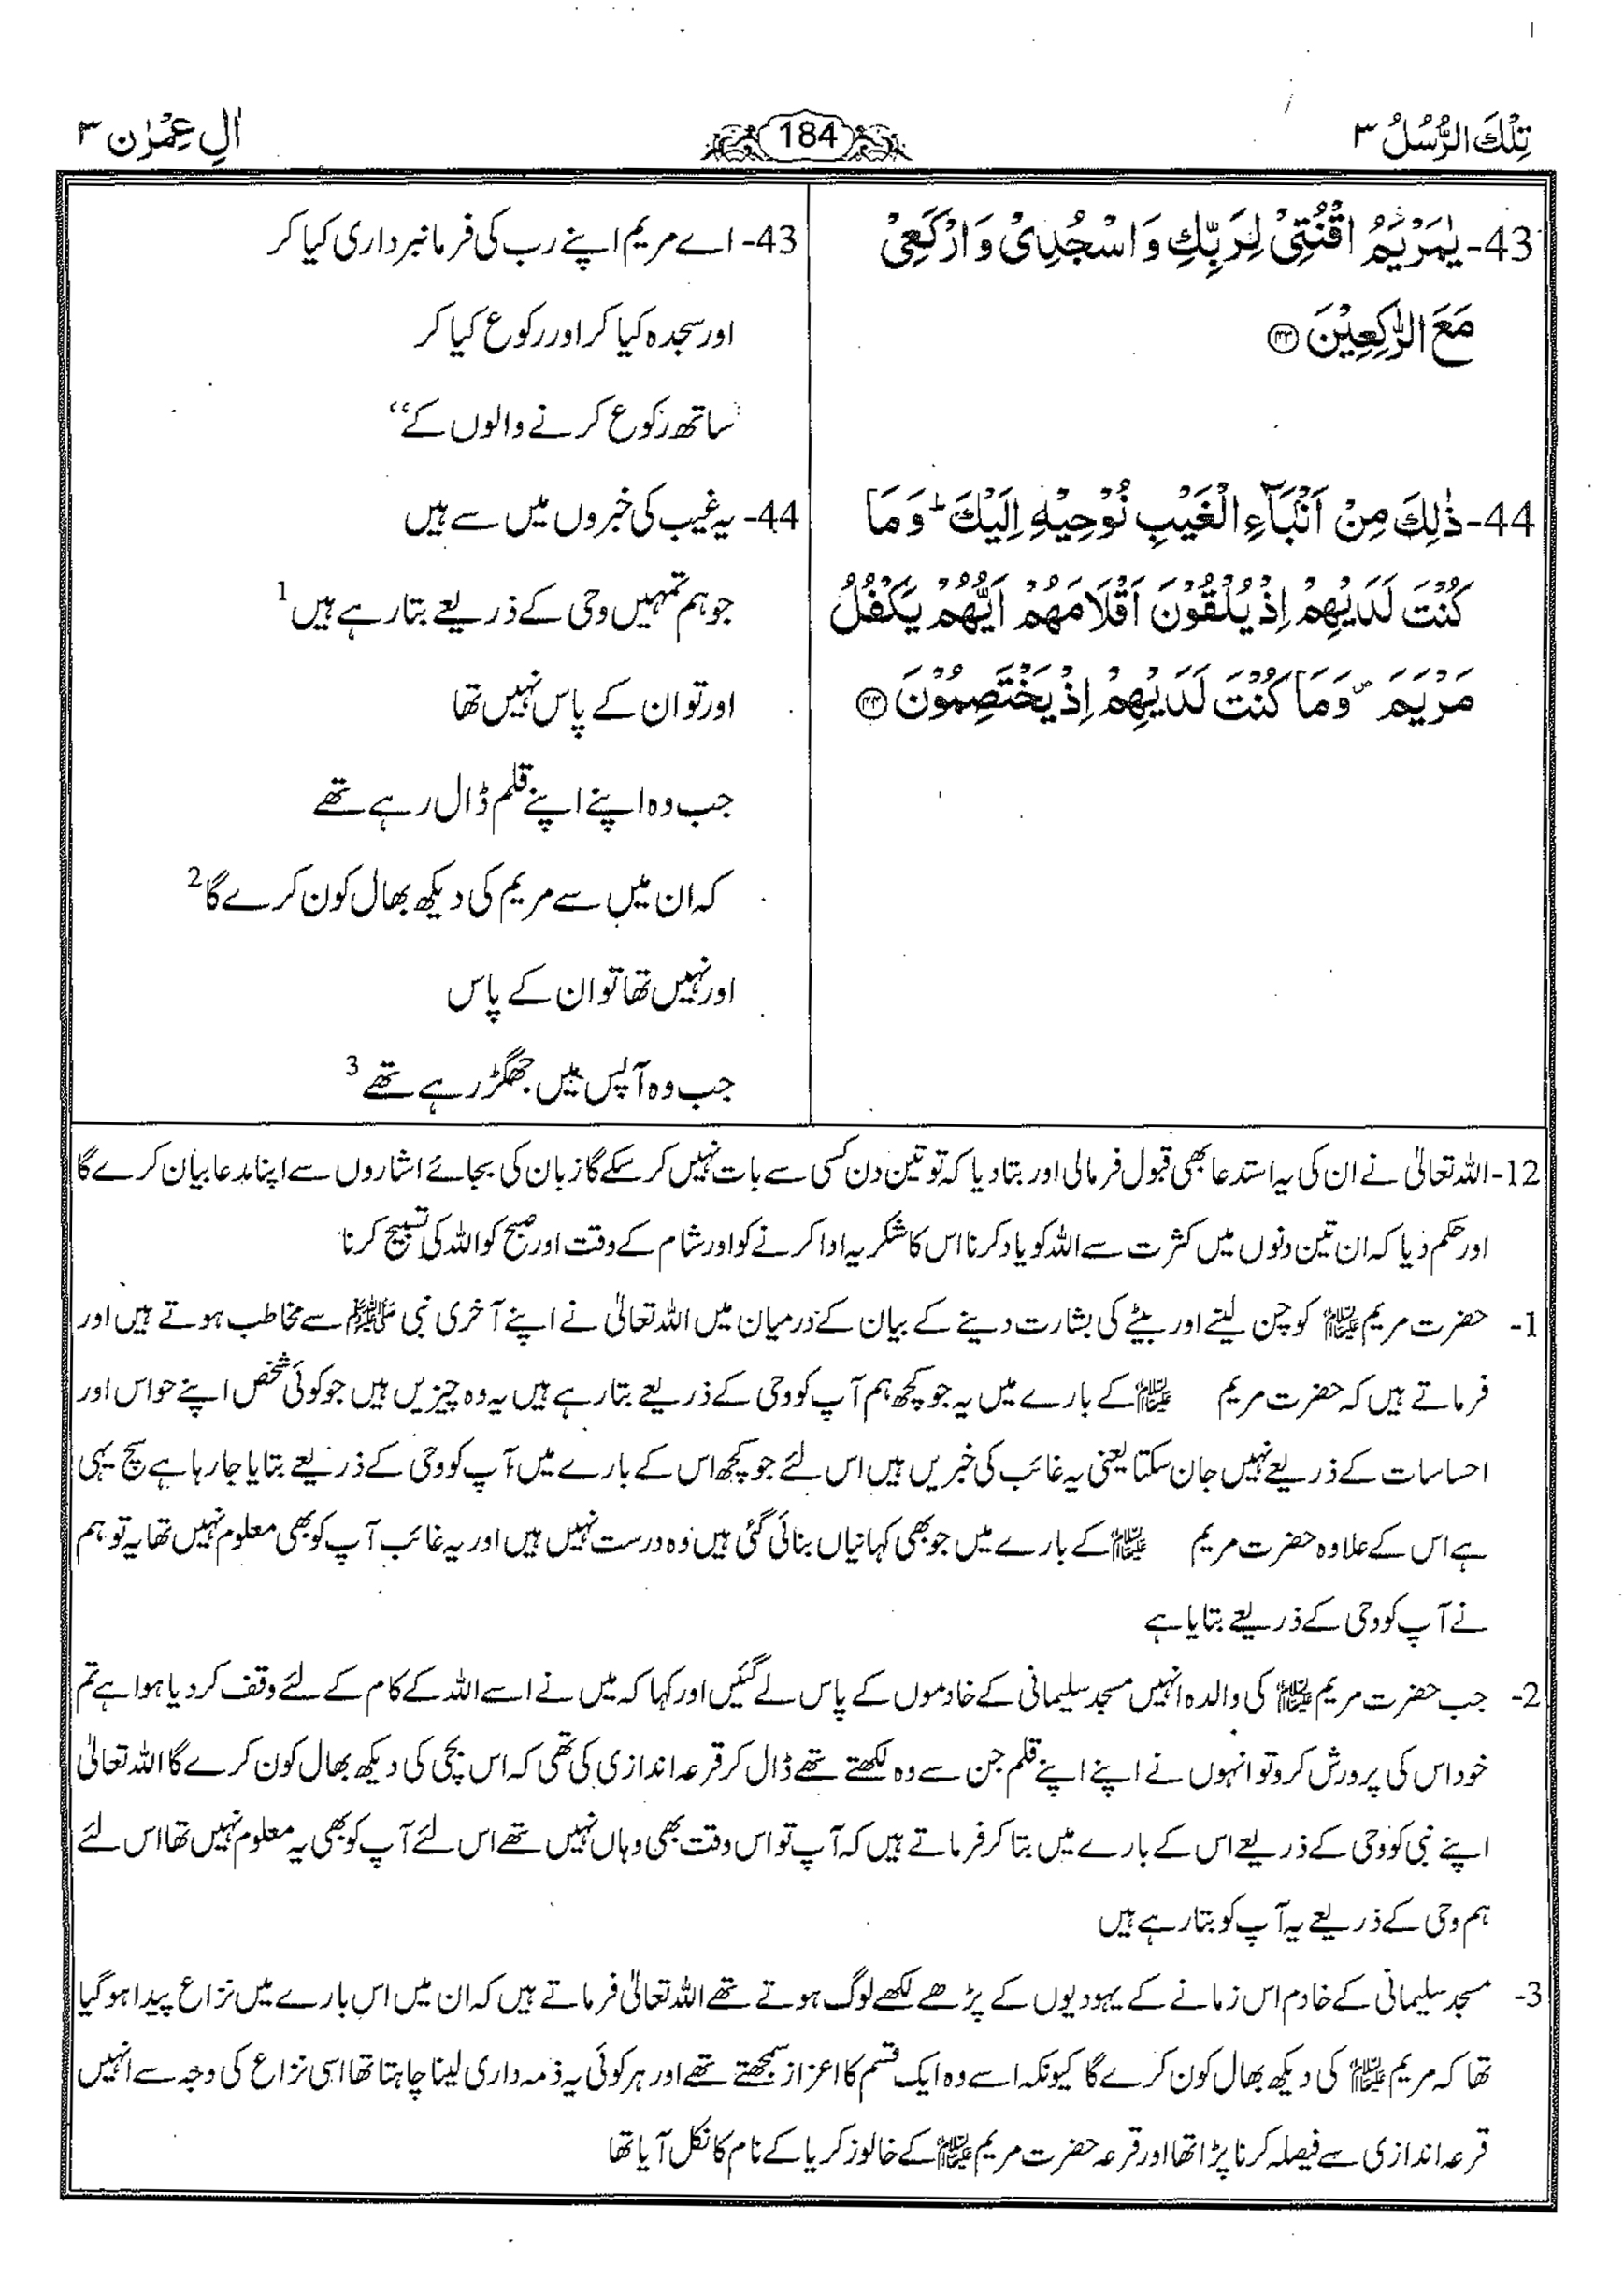 تِلْكَ الرُّسُلُ ٣
184
اٰلِ عِمْرٰن ٣
43- يٰمَرْيَمُ اقْنُتِيْ لِرَبِّكِ وَاسْجُدِيْ وَارْكَعِيْ
مَعَ الرّٰكِعِيْنَ ۝۴۳
44- ذٰلِكَ مِنْ اَنْۢبَآءِ الْغَيْبِ نُوْحِيْهِ اِلَيْكَ ؕ وَمَا
كُنْتَ لَدَيْهِمْ اِذْ يُلْقُوْنَ اَقْلَامَهُمْ اَيُّهُمْ يَكْفُلُ
مَرْيَمَ ۪ وَمَا كُنْتَ لَدَيْهِمْ اِذْ يَخْتَصِمُوْنَ ۝۴۴
43- اے مریم اپنے رب کی فرمانبرداری کیا کر
اور سجدہ کیا کر اور رکوع کیا کر
ساتھ رکوع کرنے والوں کے‘‘
44- یہ غیب کی خبروں میں سے ہیں
جو ہم تمہیں وحی کے ذریعے بتا رہے ہیں 1
اور تو ان کے پاس نہیں تھا
جب وہ اپنے اپنے قلم ڈال رہے تھے
کہ ان میں سے مریم کی دیکھ بھال کون کرے گا 2
اور نہیں تھا تو ان کے پاس
جب وہ آپس میں جھگڑ رہے تھے 3
12- اللہ تعالیٰ نے ان کی یہ استدعا بھی قبول فرمالی اور بتا دیا کہ تو تین دن کسی سے بات نہیں کر سکے گا زبان کی بجائے اشاروں سے اپنا مدعا بیان کرے گا
اور حکم دیا کہ ان تین دنوں میں کثرت سے اللہ کو یاد کرنا اس کا شکریہ ادا کرنے کو اور شام کے وقت اور صبح کو اللہ کی تسبیح کرنا
1- حضرت مریم ﷺ کو چن لینے اور بیٹے کی بشارت دینے کے بیان کے درمیان میں اللہ تعالیٰ نے اپنے آخری نبی ﷺ سے مخاطب ہوتے ہیں اور
فرماتے ہیں کہ حضرت مریم ﷺ کے بارے میں یہ جو کچھ ہم آپ کو وحی کے ذریعے بتا رہے ہیں یہ وہ چیزیں ہیں جو کوئی شخص اپنے حواس اور
احساسات کے ذریعے نہیں جان سکتا یعنی یہ غائب کی خبریں ہیں اس لئے جو کچھ اس کے بارے میں آپ کو وحی کے ذریعے بتایا جا رہا ہے سچ یہی
ہے اس کے علاوہ حضرت مریم ﷺ کے بارے میں جو بھی کہانیاں بنائی گئی ہیں وہ درست نہیں ہیں اور یہ غائب آپ کو بھی معلوم نہیں تھا یہ تو ہم
نے آپ کو وحی کے ذریعے بتایا ہے
2- جب حضرت مریم ﷺ کی والدہ انہیں مسجد سلیمانی کے خادموں کے پاس لے گئیں اور کہا کہ میں نے اسے اللہ کے کام کے لئے وقف کر دیا ہوا ہے تم
خود اس کی پرورش کرو تو انہوں نے اپنے اپنے قلم جن سے وہ لکھتے تھے ڈال کر قرعہ اندازی کی تھی کہ اس بچی کی دیکھ بھال کون کرے گا اللہ تعالیٰ
اپنے نبی کو وحی کے ذریعے اس کے بارے میں بتا کر فرماتے ہیں کہ آپ تو اس وقت بھی وہاں نہیں تھے اس لئے آپ کو بھی یہ معلوم نہیں تھا اس لئے
ہم وحی کے ذریعے یہ آپ کو بتا رہے ہیں
3- مسجد سلیمانی کے خادم اس زمانے کے یہودیوں کے پڑھے لکھے لوگ ہوتے تھے اللہ تعالیٰ فرماتے ہیں کہ ان میں اس بارے میں نزاع پیدا ہو گیا
تھا کہ مریم ﷺ کی دیکھ بھال کون کرے گا کیونکہ اسے وہ ایک قسم کا اعزاز سمجھتے تھے اور ہر کوئی یہ ذمہ داری لینا چاہتا تھا اسی نزاع کی وجہ سے انہیں
قرعہ اندازی سے فیصلہ کرنا پڑا تھا اور قرعہ حضرت مریم ﷺ کے خالو زکریا کے نام کا نکل آیا تھا